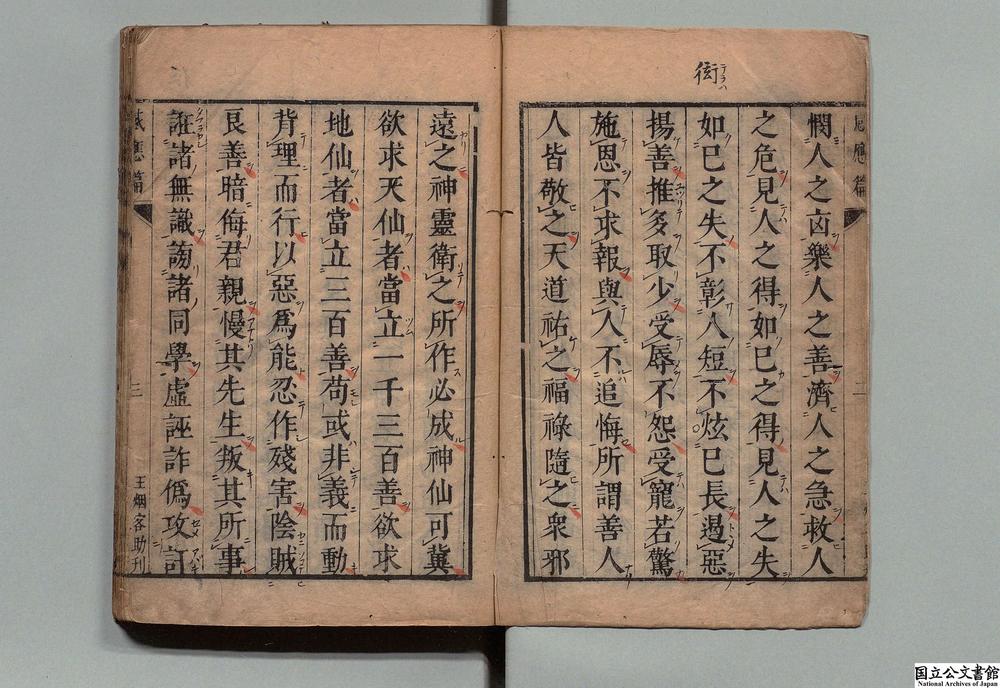 感應篇
二
衒
テラハ
憫人之凶樂人之善濟人之急救人
之危見人之得如巳之得見人之失
如巳之失不彰人短不炫巳長遏惡
揚善推多取少受辱不怨受寵若驚
施恩不求報與人不追悔所謂善人
人皆敬之天道祐之福祿隨之衆邪
遠之神靈衛之所作必成神仙可冀
欲求天仙者當立一千三百善欲求
地仙者當立三百善苟或非義而動
背理而行以惡爲能忍作殘害陰賊
良善暗侮君親慢其先生叛其所事
誑諸無識謗諸同學虛誣詐僞攻訐
感應篇
三
王烟客助刊
国立公文書館
National Archives of Japan